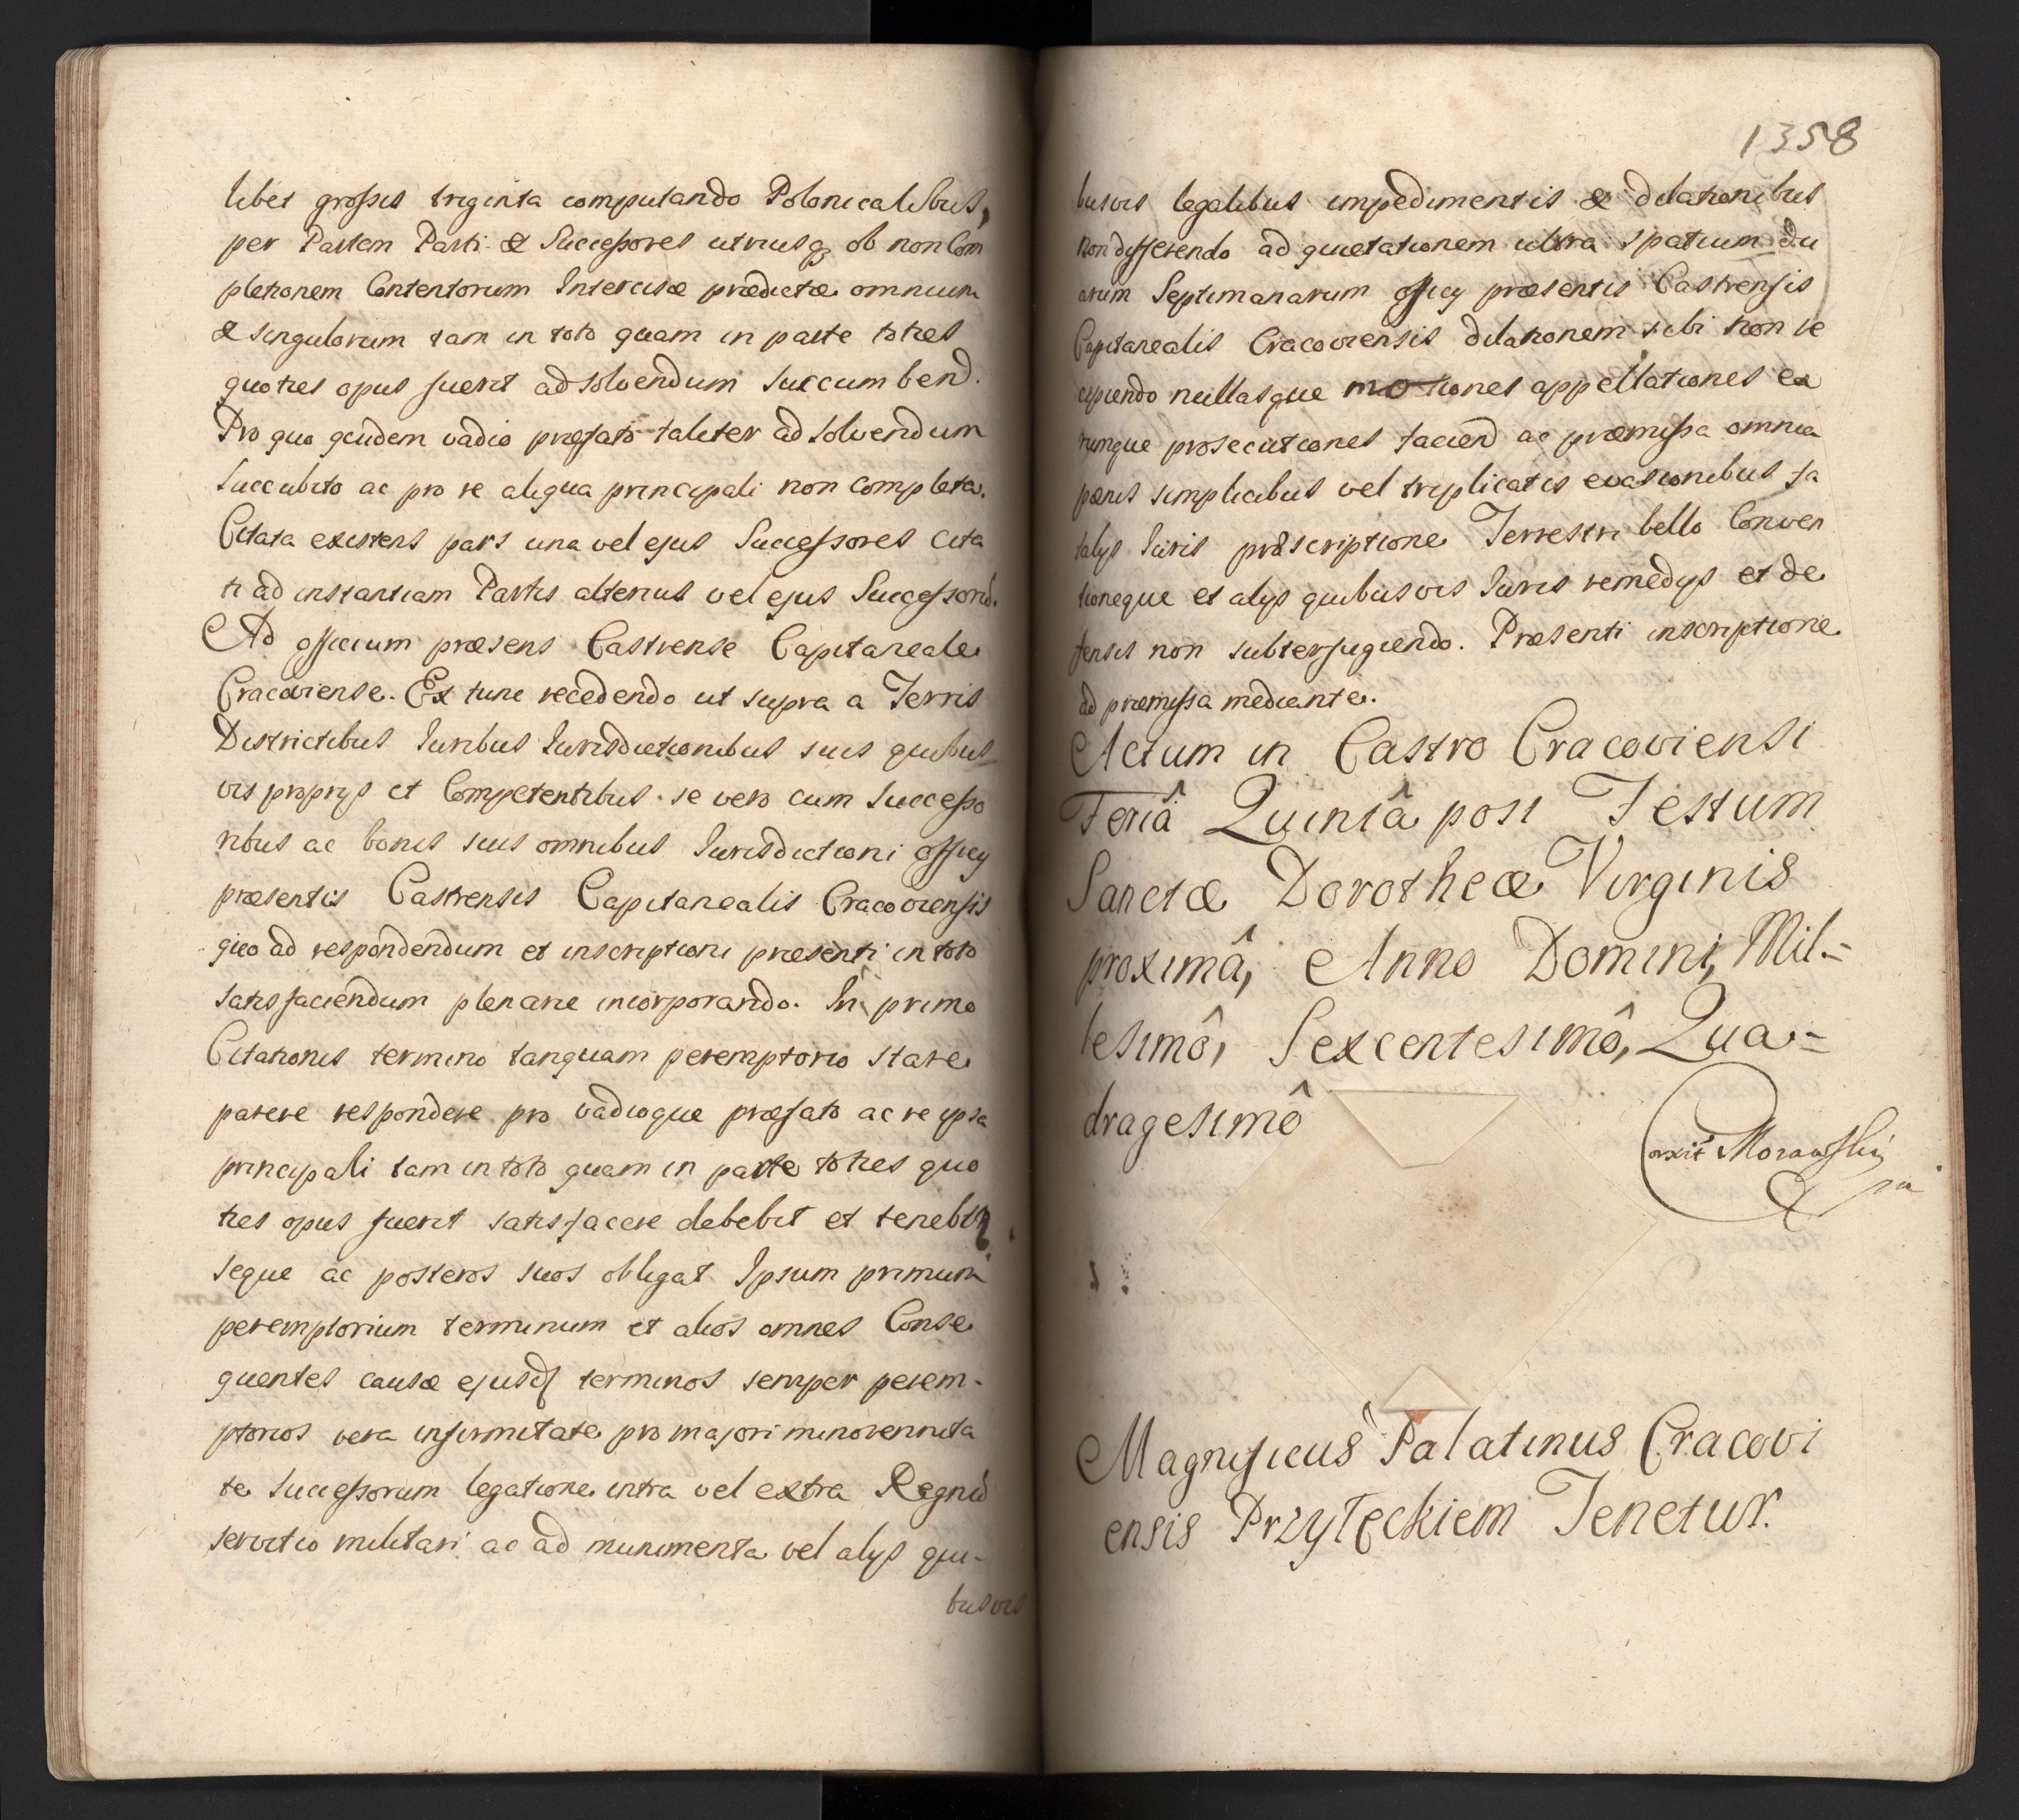 libet grossis triginta computando Polonicalibus,
per Partem Parti & Successores utriusq3 ob non Com
pletionem Contentorum Intercisæ prædictæ omnium
& singulorum tam in toto quam in parte toties
quoties opus fuerit ad solvendum succumbend.
Pro quo quidem vadio præfato taliter ad solvendum
succubito ac pro re aliqua principali non completa.
Citata existens pars una vel ejus Successores cita
ti ad instantiam Partis alterius vel ejus Successorū.
Ad officium præsens Castrense Capitaneale
Cracoviense. Ex tunc recedendo ut supra a Terris
Districtibus Iuribus Iurisdictionibus suis quibus
vis proprys et Competentibus. se vero cum Successo
ribus ac bonis suis omnibus Iurisdictioni officy
præsentis Castrensis Capitanealis Cracoviensis
quo ad respondendum et inscriptioni præsenti in toto
satisfaciendum plenarie incorporando. In primo
Citationis termino tanquam peremptorio stare
parere respondere pro vadioque præfato ac re ipsa
principali tam in toto quam in parte toties quo
ties opus fuerit satisfacere debebit et tenebit
seque ac posteros suos obligat Ipsum primum
peremptorium terminum et alios omnes Conse
quentes causæ ejusd terminos semper perem-
ptorios vera infirmitate pro majori minorennita
te Successorum legatione intra vel extra Regnū
servitio militari ac ad munimenta vel alys qui-
busvis
1358
busvis legalibus impedimentis & dilationibus
non differendo ad quietationem ultra spatium du
arum Septimanarum officy præsentis Castrensis
Capitanealis Cracoviensis dilationem sibi non re
cipiendo nullasque motiones appellationes ea
rumque prosecutiones faciend ac præmissa omnia
pœnis simplicibus vel triplicatis evasionibus fa
talys Iuris præscriptione Terrestri bello Conven
tioneque et alys quibusvis Iuris remedys et de
fensis non subterfugiendo. Præsenti inscriptione
ad præmissa mediante.
Actum in Castro Cracoviensi
Feriâ Quintâ post Festum
Sanctæ Dorotheæ Virginis
proximâ, Anno Domini, Mil-
lesimô, Sexcentesimô, Qua-
dragesimô
Corxit Morawski
Magnificus Palatinus Cracovi
ensis Przyłęckiem Tenetur.